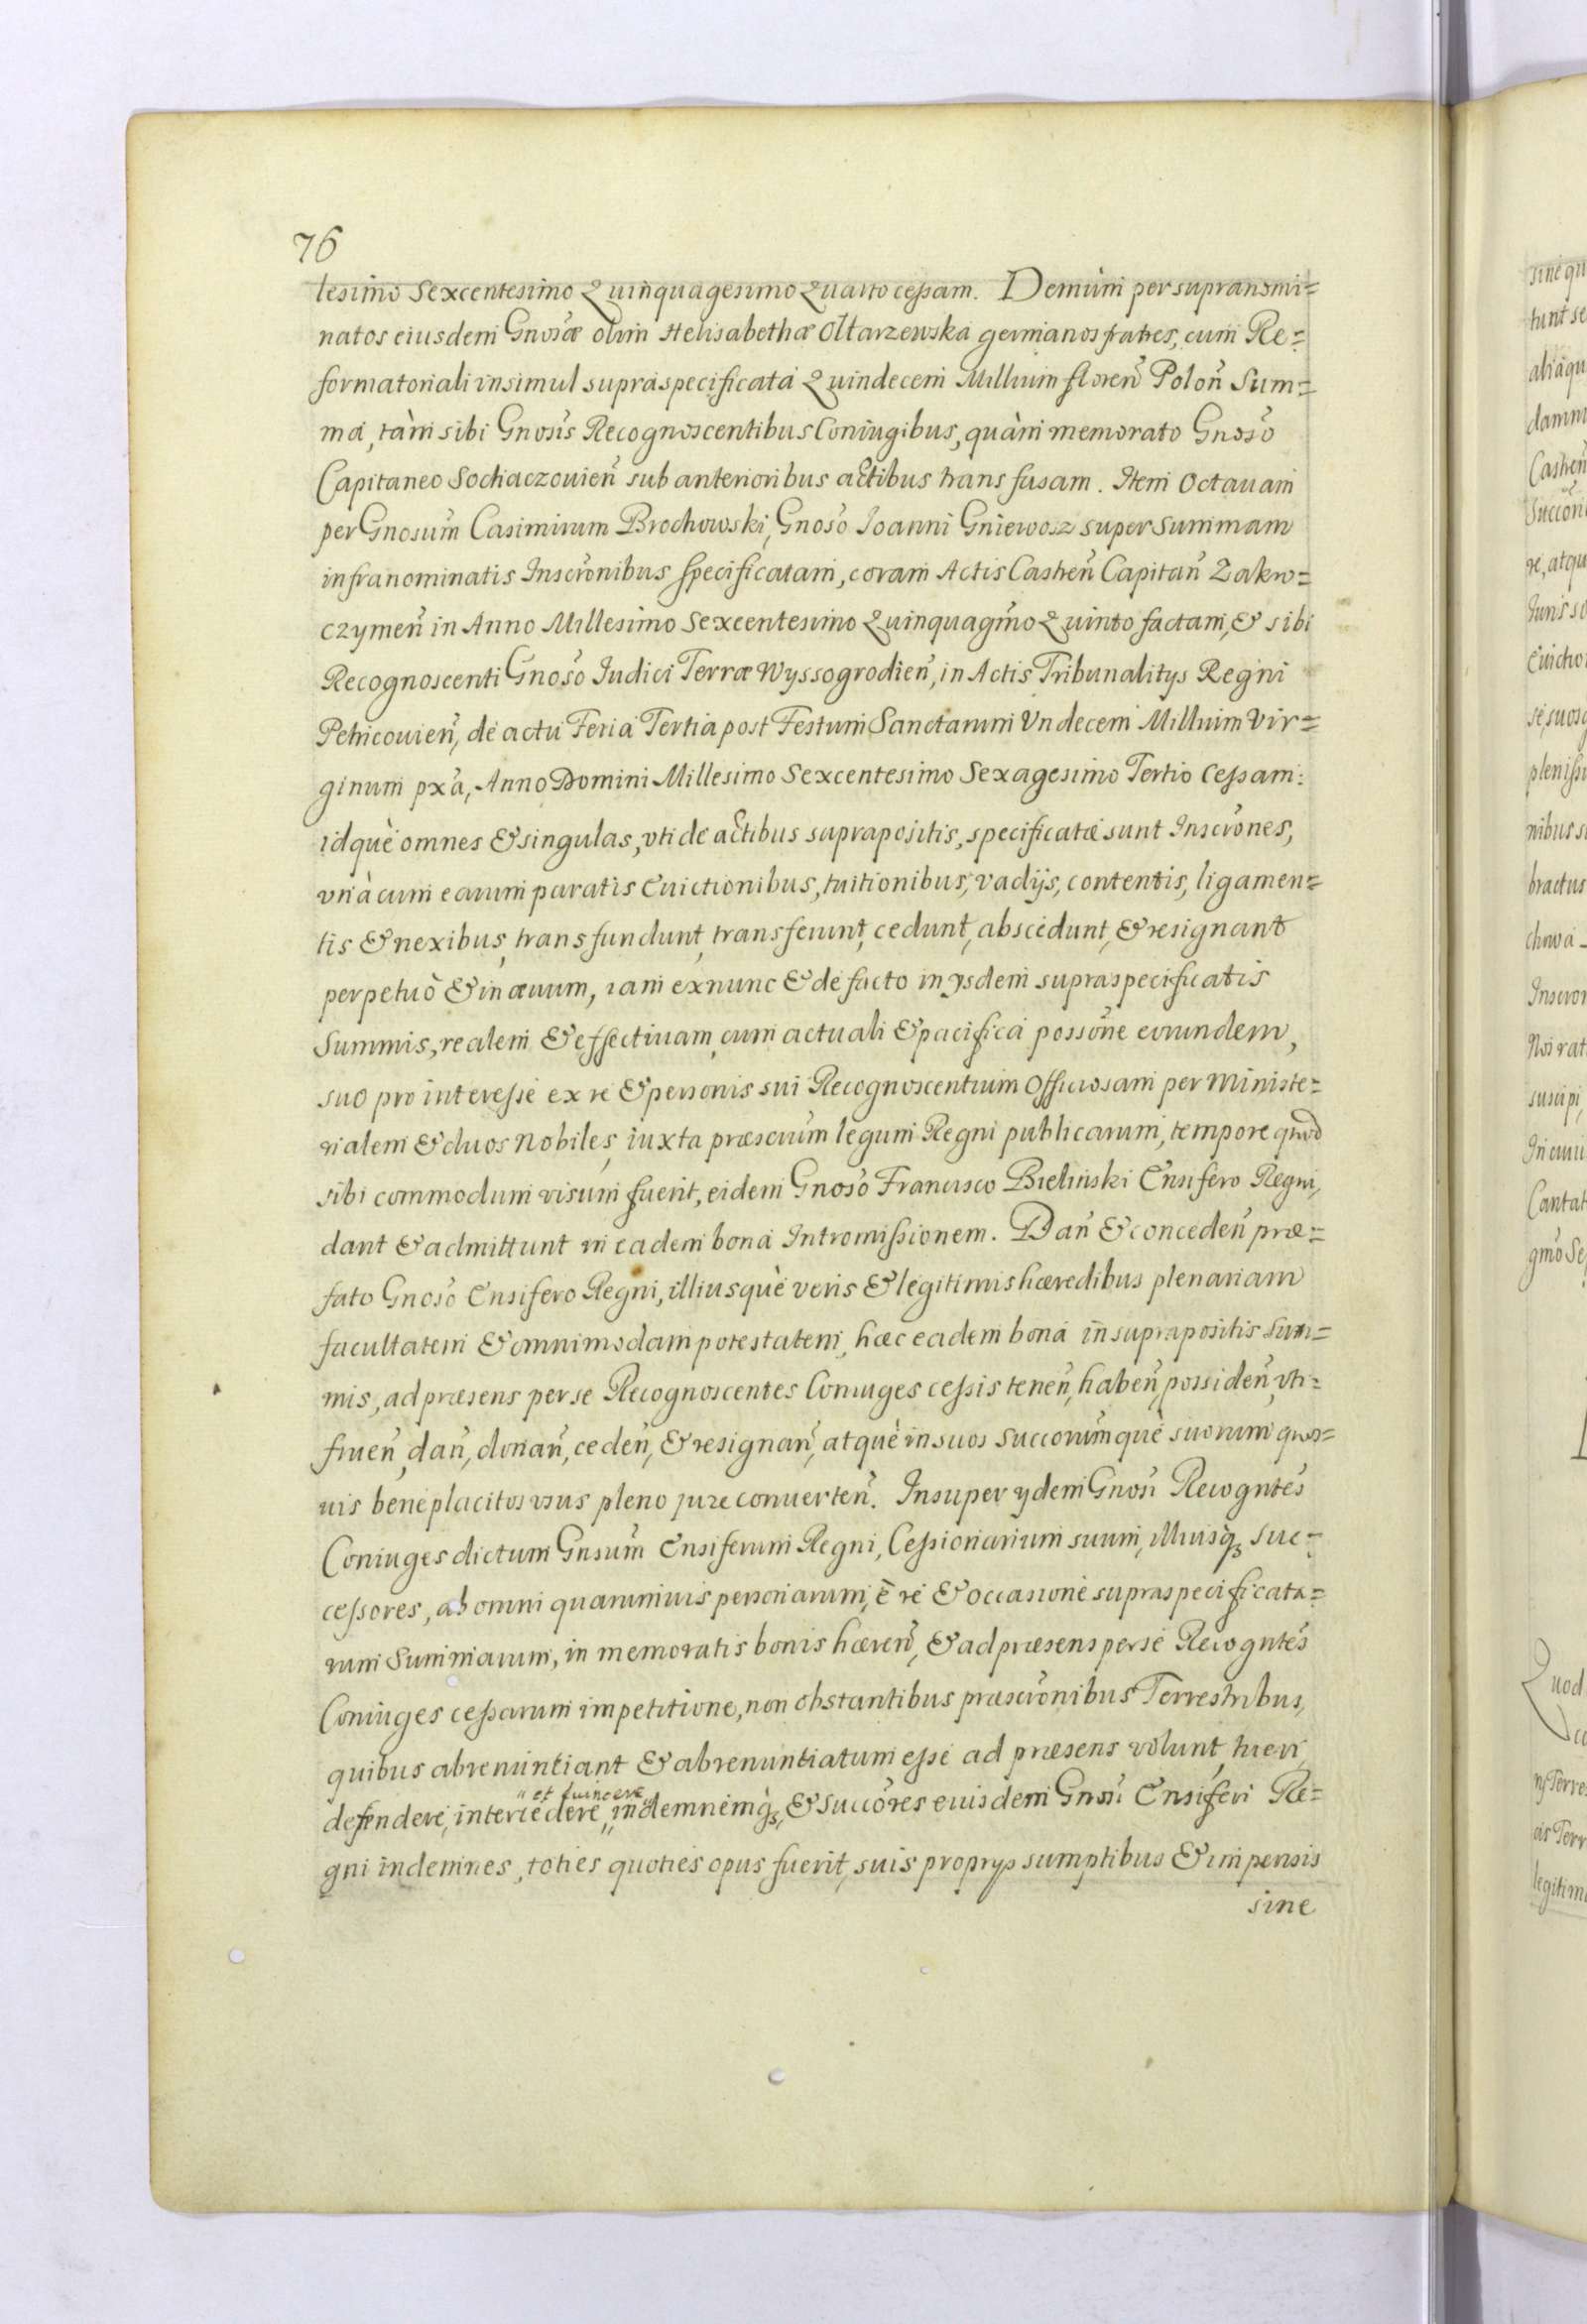 76
lesimo Sexcentesimo Quinquagesimo Quarto cessam. Demùm per supranomi=
natos eiusdem Gnosæ olim Helisabethæ Ołtarzewska germanos fratres, cum Re=
formatoriali insimul supraspecificata Quindecem Millium floren̄ Polon̄ Sum=
ma, tàm sibi Gnosis Recognoscentibus Coniugibus, quàm memorato Gnoso
Capitaneo Sochaczouien̄ sub anterioribus actibus transfusam. Item Octauam
per Gnosum Casimirum Brochowski, Gnoso Ioanni Gniewosz super Summam
infranominatis Inscrōnibus specificatam, coram Actis Castren̄ Capitan̄ Zakro=
czymen̄ in Anno Millesimo Sexcentesimo Quinquagmo Quinto factam, & sibi
Recognoscenti Gnoso Iudici Terræ Wyssogrodien̄, in Actis Tribunalitys Regni
Petricouien̄, de actu Feria Tertia post Festum Sanctarum Vndecem Millium Vir=
ginum pxa, Anno Domini Millesimo Sexcentesimo Sexagesimo Tertio Cessam:
idquè omnes & singulas, vti de actibus suprapositis, specificatæ sunt Inscrōnes,
vnà cum earum paratis Euictionibus, tuitionibus, vadijs, contentis, ligamen=
tis & nexibus, transfundunt, transferunt, cedunt, abscedunt, & resignant
perpetuò & in æuum, iam exnunc & de facto in ysdem supraspecificatis
Summis, realem & effectiuam, cum actuali & pacifica possōne eorundem,
suo pro interesse ex re & personis sui Recognoscentium Officiosam per Ministe=
rialem & duos Nobiles, iuxta præscrum legum Regni publicarum, tempore quod
sibi commodum visum fuerit, eidem Gnoso Francisco Bielinski Ensifero Regni,
dant & admittunt in eadem bona Intromissionem. Dan̄ & conceden̄ præ=
fato Gnoso Ensifero Regni, illiusquè veris & legitimis hæredibus plenariam
facultatem & omnimodam potestatem, hæc eadem bona in suprapositis Sum=
mis, ad præsens per se Recognoscentes Coniuges cessis tenen̄, haben̄, possiden̄, vti=
fruen̄, dan̄, donan̄, ceden̄, & resignan̄, atquè in suos succorumquè suorum quos=
uis beneplacitos vsus pleno jure conuerten̄. Insuper ydem Gnosi Recogntes
Coniuges dictum Gnsum Ensiferum Regni, Cessionarium suum, illiusq3 suc=
cessores, ab omni quarumuis personarum, è re & occasione supraspecificata=
rum Summarum, in memoratis bonis hæren̄, & ad præsens per se Recogntes
Coniuges cessarum impetitione, non obstantibus præscrōnibus Terrestribus,
quibus abrenuntiant & abrenuntiatum esse ad præsens volunt, tueri,
" et Euincere
defendere, intercedere, " indemnemq3, & succōres eiusdem Gnosi Ensiferi Re=
gni indemnes, toties quoties opus fuerit, suis proprys sumptibus & impensis
sine